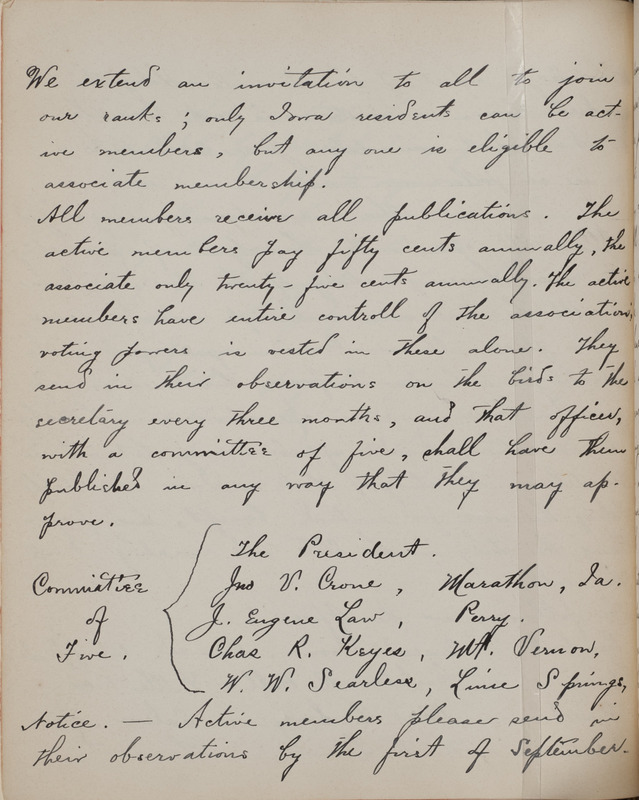 We extend an invitation to all to join
our ranks ; only Iowa residents can be act-
ive members, but any one is eligible to
associate membership.
All members receive all publications. The
active members pay fifty cents annually, the
associate only twenty-five cents annually. The active
members have entire controll of the association,
voting powers is vested in these alone. They
send in their observations on the birds to the
secretary every three months, and that officer,
with a committee of five, shall have them
published in any way that they may ap-
prove.
The President.
Committee Jno V. Crone, Marathon, Ia.
of J. Eugene Law, Perry.
Five. Chas R. Keyes, Mt. Vernon,
W. W. Searless, Lime Springs,
Notice. — Active members please send in
their observations by the first of September.